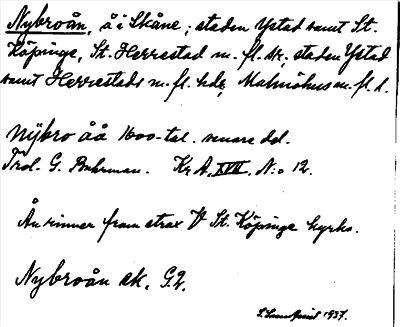 Nybroån, å i Skåne; staden Ystad samt St.
Köpinge, St. Herrestad m. fl. sk., staden Ystad
samt Herrestads m. fl. hdr, Malmöhus m. fl. l.
Nÿbro åå 1600-tal. senare del.
Trol. G. Buhrman. Kr. A. XVII. N:o 12.
Ån rinner fram strax V St. Köpinge kyrka.
Nybroån ek. G.2.
1937.